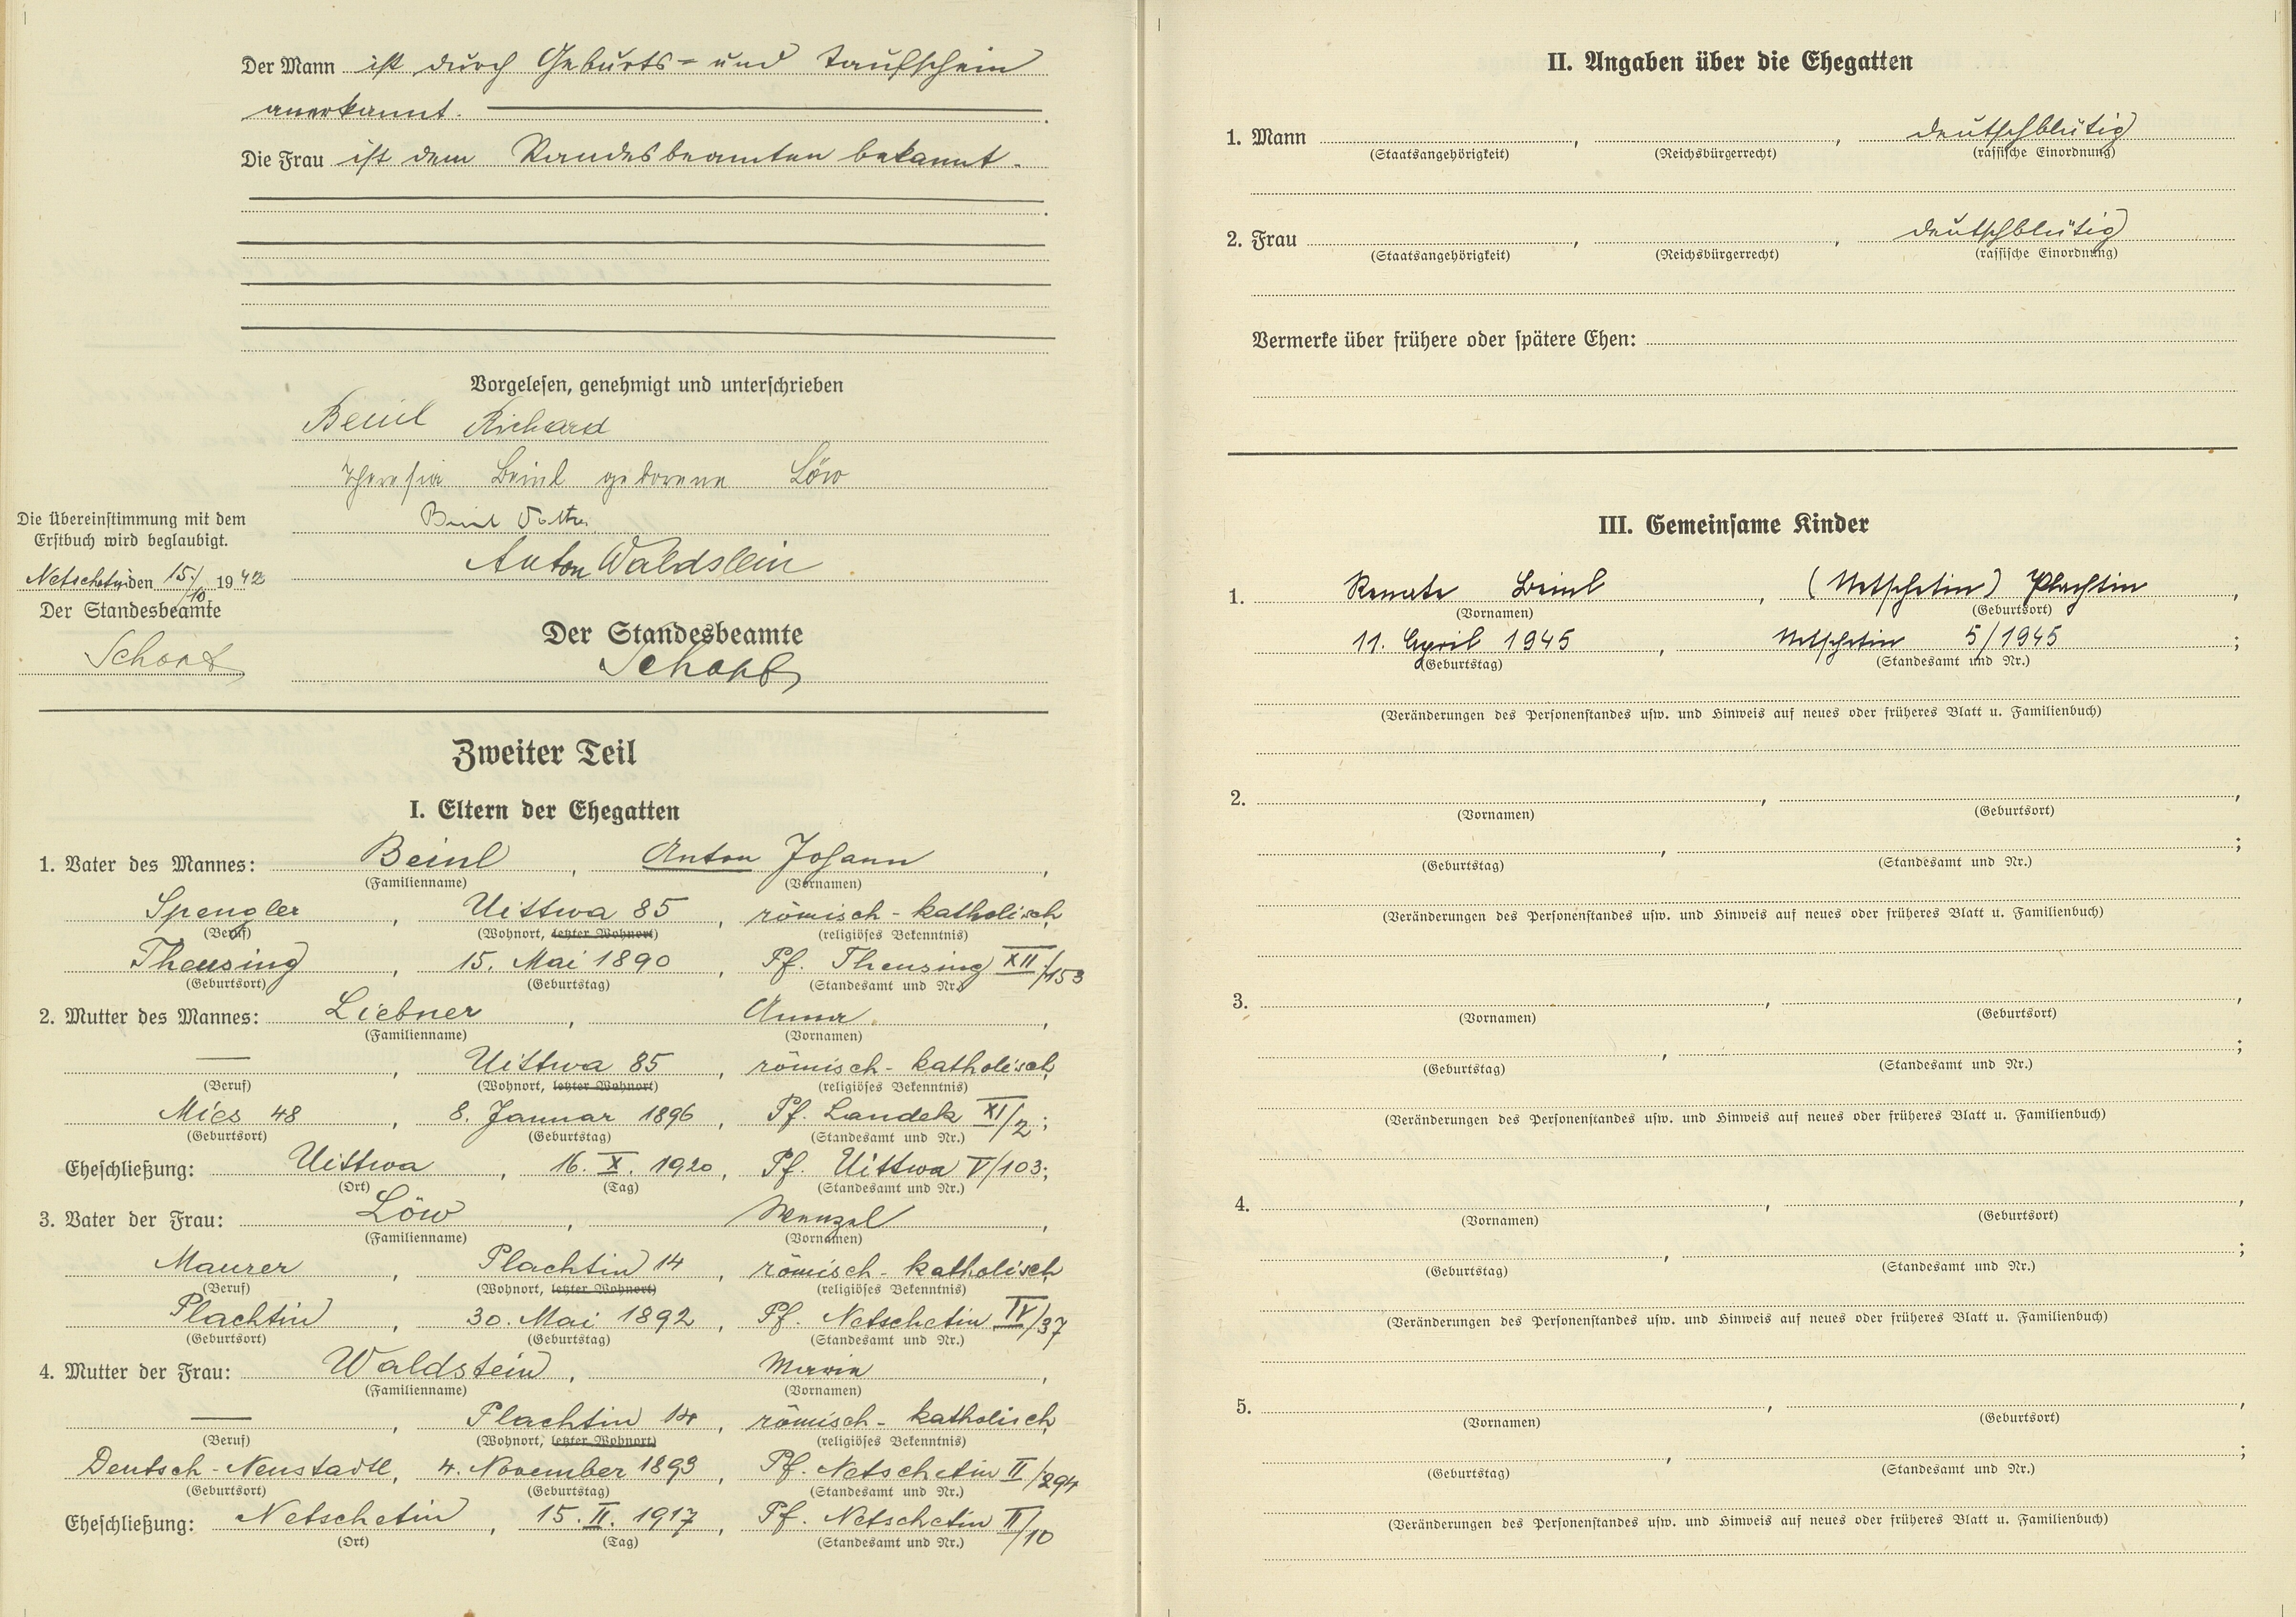 Der Mann ist durch Geburts- und Taufschein
anerkannt.
Die Frau ist dem Standesbeamten bekannt.
Vorgelesen, genehmigt und unterschrieben
Beinl Richard
Theresia Beinl geborene Löw
Beinl
Anton Waldstein
Die Übereinstimmung mit dem
Erstbuch wird beglaubigt.
Netschetin den 15./10. 1942
Der Standesbeamte
Der Standesbeamte
Zweiter Teil
I. Eltern der Ehegatten
1. Vater des Mannes: Beinl, Anton Johann,
(Familienname) (Vornamen)
Spengler, Uittwa 85, römisch-katholisch
(Beruf) (Wohnort, letzter Wohnort) (religiöses Bekenntnis)
Theusing, 15. Mai 1890, Pf. Theusing XII/153
(Geburtsort) (Geburtstag) (Standesamt und Nr.)
2. Mutter des Mannes: Liebner, Anna,
(Familienname) (Vornamen)
—, Uittwa 85, römisch-katholisch,
(Beruf) (Wohnort, letzter Wohnort) (religiöses Bekenntnis)
Mies 48, 8. Januar 1896, Pf. Landek XI/2;
(Geburtsort) (Geburtstag) (Standesamt und Nr.)
Eheschließung: Uittwa, 16. X. 1920, Pf. Uittwa V/103;
(Ort) (Tag) (Standesamt und Nr.)
3. Vater der Frau: Löw, Wenzel,
(Familienname) (Vornamen)
Maurer, Plachtin 14, römisch-katholisch
(Beruf) (Wohnort, letzter Wohnort) (religiöses Bekenntnis)
Plachtin, 30. Mai 1892, Pf. Netschetin IV/37
(Geburtsort) (Geburtstag) (Standesamt und Nr.)
4. Mutter der Frau: Waldstein, Maria,
(Familienname) (Vornamen)
—, Plachtin 14, römisch-katholisch,
(Beruf) (Wohnort, letzter Wohnort) (religiöses Bekenntnis)
Deutsch-Neustadtl, 4. November 1893, Pf. Netschetin II/294
(Geburtsort) (Geburtstag) (Standesamt und Nr.)
Eheschließung: Netschetin, 15. II. 1917, Pf. Netschetin II/10
(Ort) (Tag) (Standesamt und Nr.)
II. Angaben über die Ehegatten
1. Mann , , deutschblütig
(Staatsangehörigkeit) (Reichsbürgerrecht) (rassische Einordnung)
2. Frau , , deutschblütig
(Staatsangehörigkeit) (Reichsbürgerrecht) (rassische Einordnung)
Vermerke über frühere oder spätere Ehen:
III. Gemeinsame Kinder
1. Renate Beinl, (Netschetin) Plachtin,
(Vornamen) (Geburtsort)
11. April 1945, Netschetin 5/1945;
(Geburtstag) (Standesamt und Nr.)
(Veränderungen des Personenstandes usw. und Hinweis auf neues oder früheres Blatt u. Familienbuch)
2. , ,
(Vornamen) (Geburtsort)
, ;
(Geburtstag) (Standesamt und Nr.)
(Veränderungen des Personenstandes usw. und Hinweis auf neues oder früheres Blatt u. Familienbuch)
3. , ,
(Vornamen) (Geburtsort)
, ;
(Geburtstag) (Standesamt und Nr.)
(Veränderungen des Personenstandes usw. und Hinweis auf neues oder früheres Blatt u. Familienbuch)
4. , ,
(Vornamen) (Geburtsort)
, ;
(Geburtstag) (Standesamt und Nr.)
(Veränderungen des Personenstandes usw. und Hinweis auf neues oder früheres Blatt u. Familienbuch)
5. , ,
(Vornamen) (Geburtsort)
, ;
(Geburtstag) (Standesamt und Nr.)
(Veränderungen des Personenstandes usw. und Hinweis auf neues oder früheres Blatt u. Familienbuch)